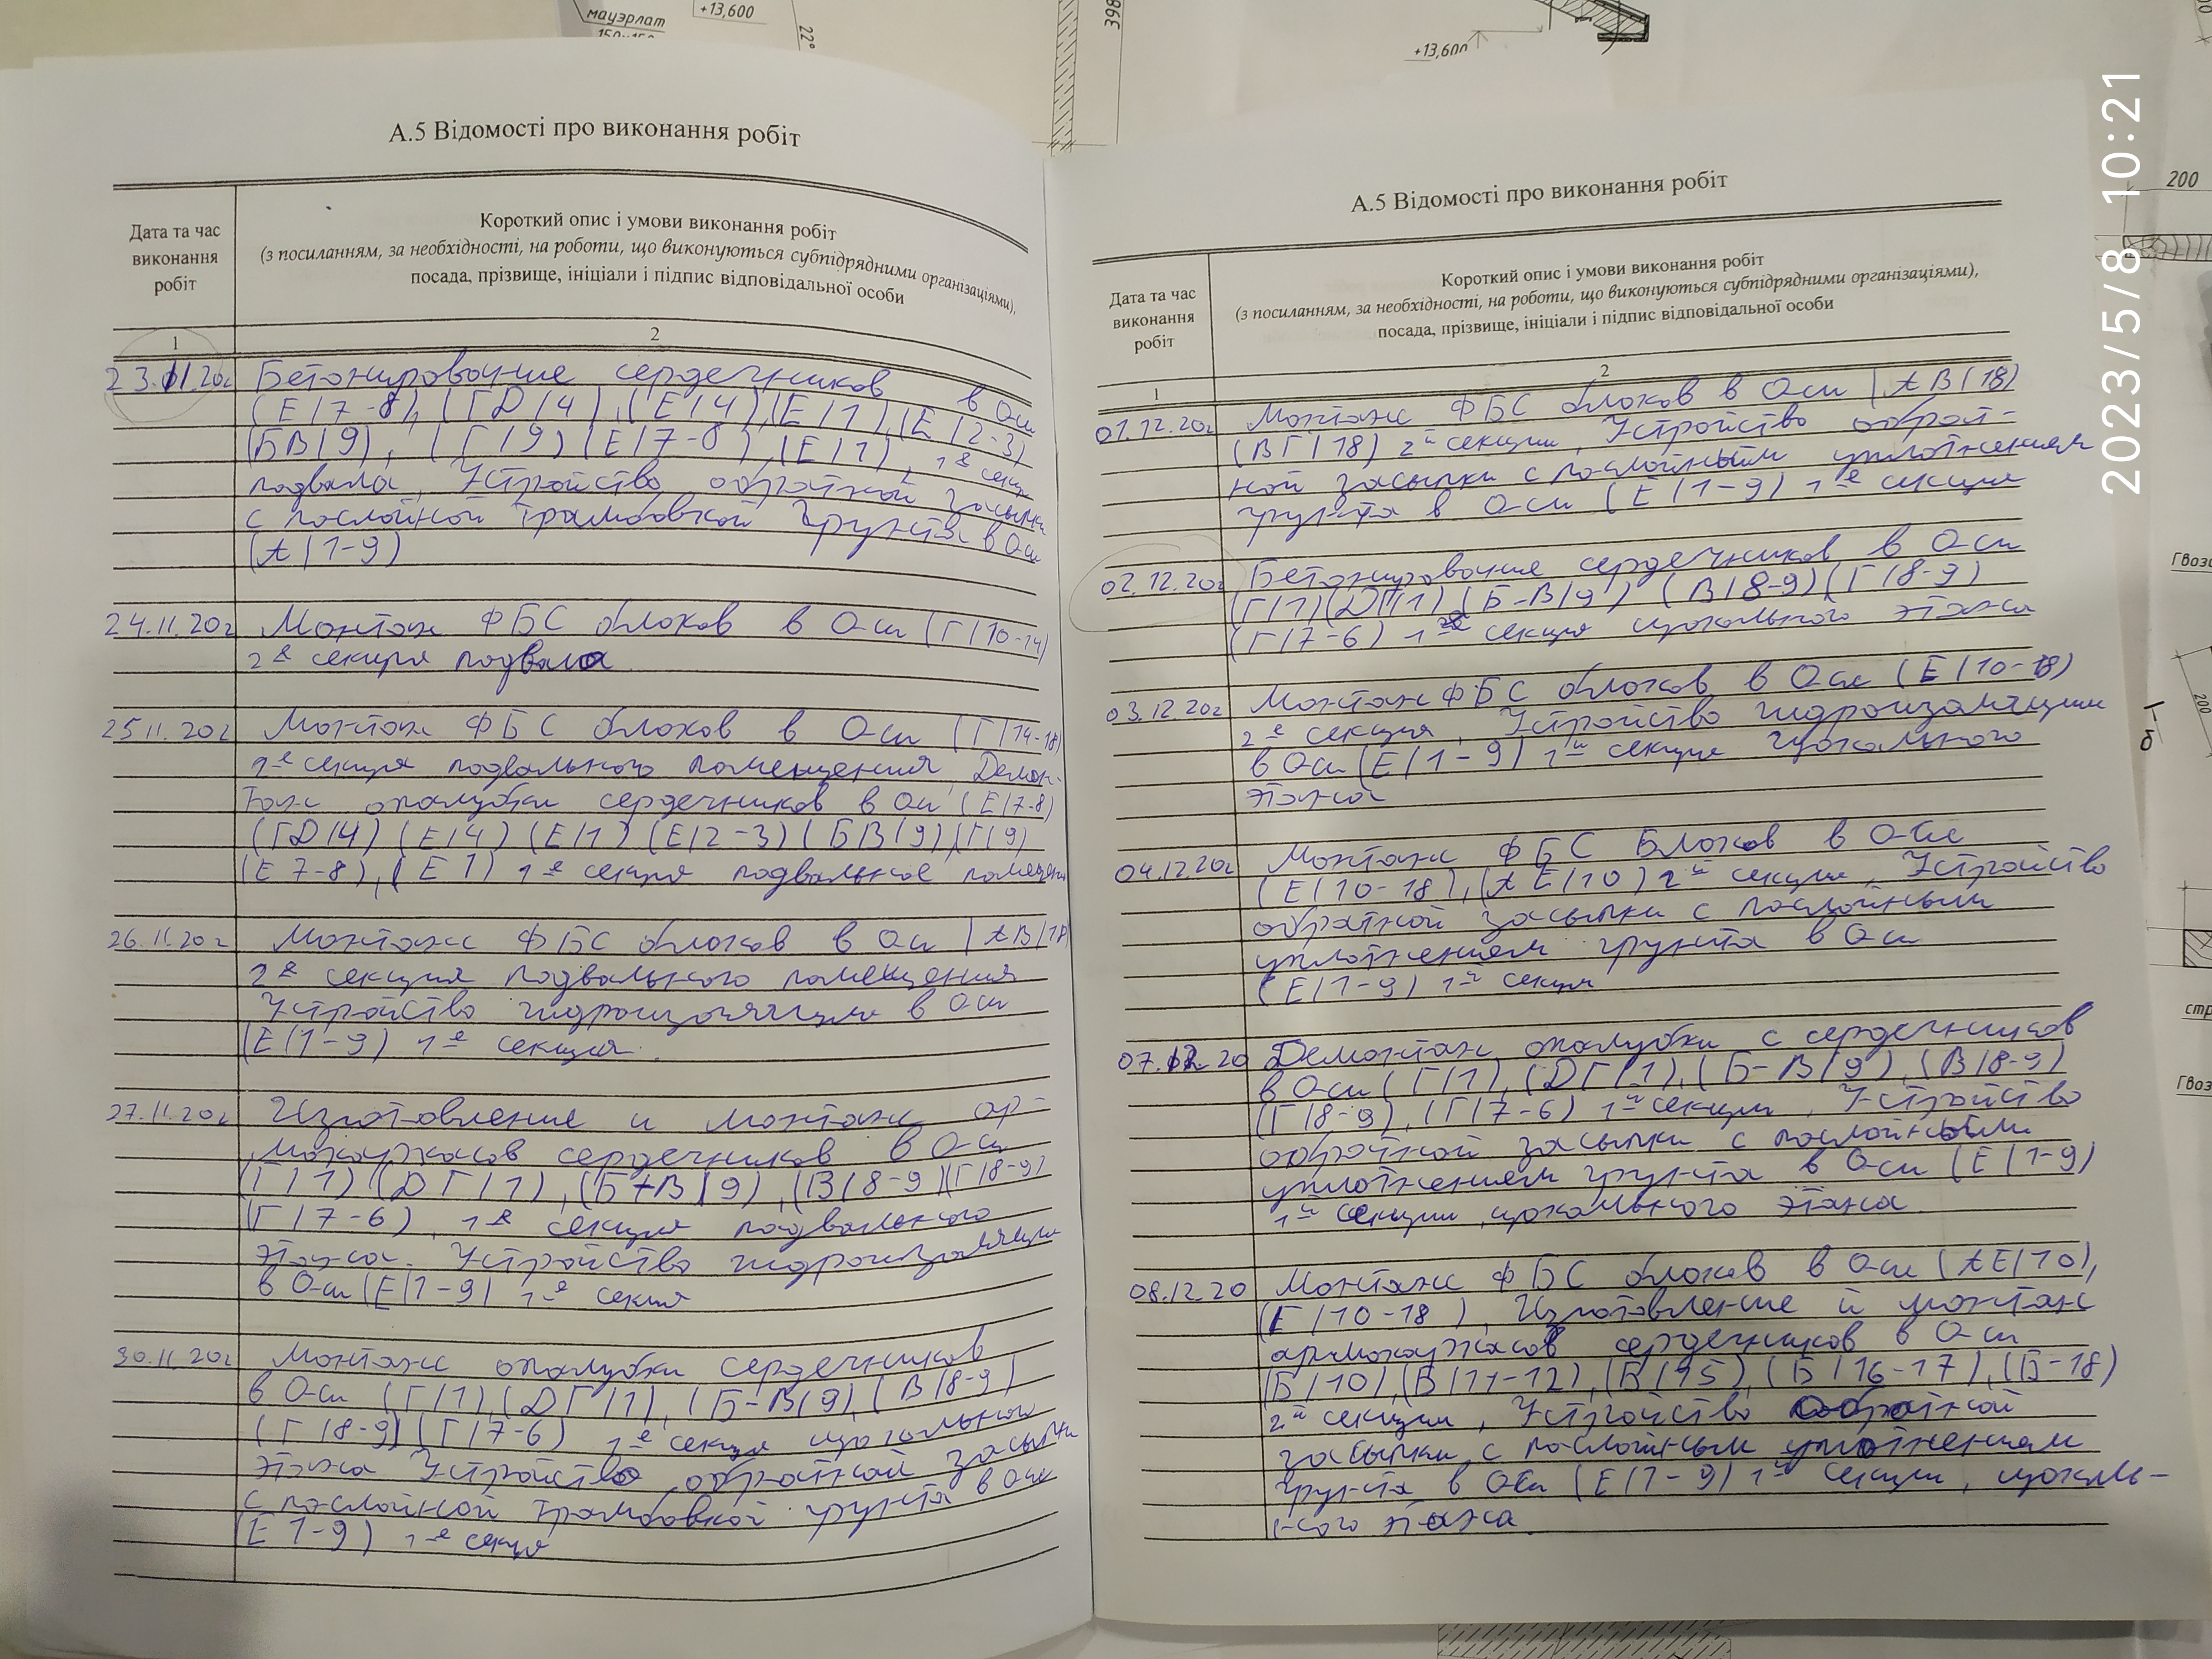 мауэрлат
+13,600
22°
398
+13,600
200
2023/5/8 10:21
А.5 Відомості про виконання робіт
Дата та час
виконання
робіт
Короткий опис і умови виконання робіт
(з посиланням, за необхідності, на роботи, що виконуються субпідрядними організаціями),
посада, прізвище, ініціали і підпис відповідальної особи
1
2
23.11.20г Бетонировочние сердечников в Оси
(Е/7-8), (ГD/4), (Е/4), (Е/1), (Е/2-3)
(БВ/9), (Г/9) (Е/7-8), (Е/1), 1я секц
подвала, Устройство обратной засыпки
с послойной трамбовкой Грунта в Оси
(А/1-9)
24.11.20г Монтаж ФБС блоков в Оси (Г/10-14)
2я секция подвала
25.11.20г Монтаж ФБС блоков в Оси (Г/14-18)
1-я секция подвального помещения, Демон-
таж опалубки сердечников в Оси (Е/7-8)
(ГD/4) (Е/4) (Е/1) (Е/2-3) (БВ/9), (Г/9)
(Е 7-8), (Е 1) 1-я секция подвальное помещени
26.11.20г Монтаж ФБС блоков в Оси (АВ/18)
2я секция подвального помещения
Устройство гидроизоляции в Оси
(Е/1-9) 1-я секция.
27.11.20г Изготовление и монтаж ар-
мокаркасов сердечников в Оси
(Г/1) (DГ/1), (Б-В/9), (В/8-9) (Г/8-9)
(Г/7-6), 1-я секция подвального
этажа. Устройство гидроизоляции
в Оси (Е/1-9) 1-я секция
30.11.20г Монтаж опалубки сердечников
в Оси (Г/1), (DГ/1), (Б-В/9), (В/8-9)
(Г/8-9) (Г/7-6) 1-я секция цокольного
этажа Устройство обратной засыпки
с послойной трамбовкой грунта в Оси
(Е 1-9) 1-я секция
А.5 Відомості про виконання робіт
Дата та час
виконання
робіт
Короткий опис і умови виконання робіт
(з посиланням, за необхідності, на роботи, що виконуються субпідрядними організаціями),
посада, прізвище, ініціали і підпис відповідальної особи
1
2
01.12.20г Монтаж ФБС блоков в Оси (АВ/18)
(ВГ/18) 2й секции, Устройство обрат-
ной засыпки с послойным уплотнением
грунта в Оси (Е/1-9) 1-я секция
02.12.20г Бетонировочние сердечников в Оси
(Г/1) (DГ/1) (Б-В/9) (В/8-9) (Г/8-9)
(Г/7-6) 1-я секция цокольного этажа
03.12.20г Монтаж ФБС блоков в Оси (Е/10-18)
2-я секция, Устройство гидроизоляции
в Оси (Е/1-9) 1-й секция цокольного
этажа
04.12.20г Монтаж ФБС Блоков в Оси
(Е/10-18), (АЕ/10) 2-й секция, Устройство
обратной засыпки с послойным
уплотнением грунта в Оси
(Е/1-9) 1-й секция
07.12.20 Демонтаж опалубки с сердечников
в Оси (Г/1), (DГ/1), (Б-В/9), (В/8-9)
(Г/8-9), (Г/7-6) 1-й секции, Устройство
обратной засыпки с послойным
уплотнением грунта в Оси (Е/1-9)
1-й секции, цокольного этажа
08.12.20 Монтаж ФБС блоков в Оси (АЕ/10),
(Е/10-18), Изготовление и монтаж
армокаркасов сердечников в Оси
(Б/10), (В/11-12), (Б/15), (Б/16-17), (Б-18)
2-й секции, Устройство обратной
засыпки с послойным уплотнением
грунта в Оси (Е/1-9) 1-й секции, цоколь-
ного этажа.
Гвоз
200
б
стр
Гвоз